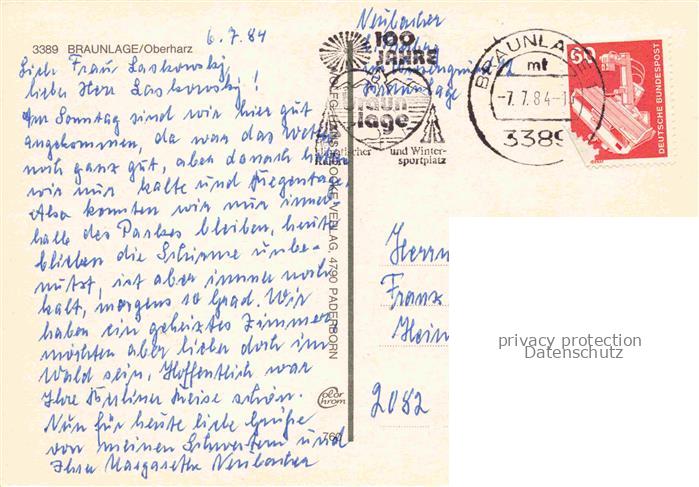 3389 BRAUNLAGE/Oberharz
6.7.84
Liebe Frau Laskowski,
lieber Herr Laskowski!
Am Sonntag sind wir hier gut
angekommen, da war das Wetter
noch ganz gut, aber danach hatten
wir nur kalte und Regentage.
Also konnten wir nur inner-
halb des Parkes bleiben, heute
blieben die Schirme unbe-
nutzt, ist aber immer noch
kalt, morgens 10 Grad. Wir
haben ein geheiztes Zimmer
möchten aber lieber doch im
Wald sein. Hoffentlich war
Ihre Berliner Reise schön.
Nun für heute liebe Grüße
von meinen Schwestern und
Ihrer Margarethe Neubacher
Neubacher
Braunlage
100
JAHRE
Braun
lage
heilklimatischer
Kurort
und Winter-
sportplatz
BRAUNLAGE
mt
-7.7.84-1
3389
60
DEUTSCHE BUNDESPOST
VERLAG, 4790 PADERBORN
Color
chrom
Herrn
Franz
Hein
2082
privacy protection
Datenschutz